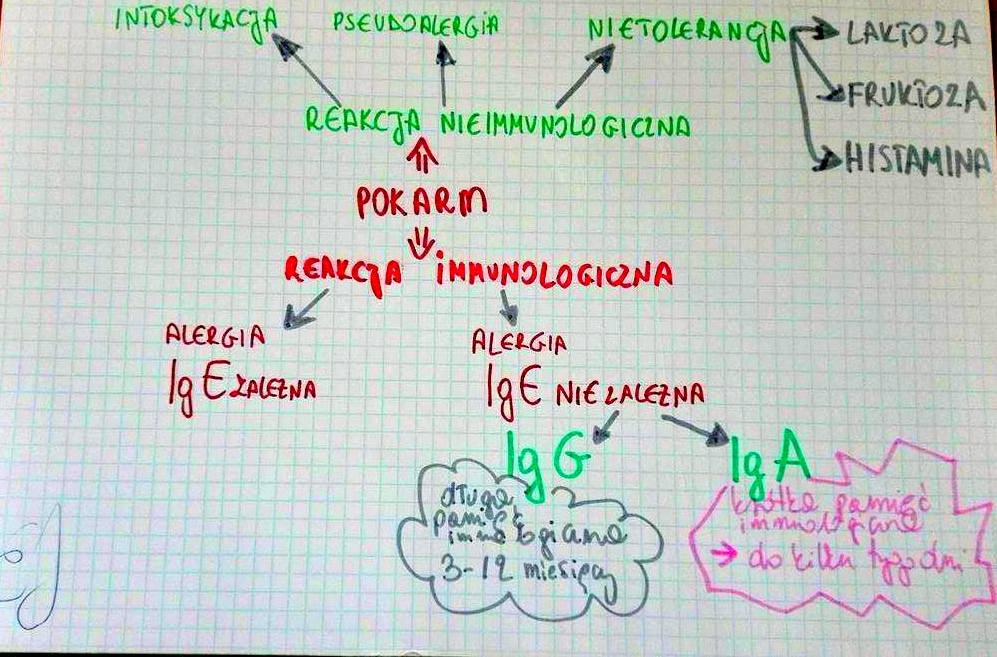 INTOKSYKACJA PSEUDOALERGIA NIETOLERANCJA LAKTOZA
FRUKTOZA
REAKCJA NIEIMMUNOLOGICZNA
HISTAMINA
POKARM
REAKCJA IMMUNOLOGICZNA
ALERGIA
IgE ZALEŻNA
ALERGIA
IgE NIEZALEŻNA
IgG
długa
pamięć
immunologiczna
3-12 miesięcy
IgA
krótka pamięć
immunologiczna
→ do kilku tygodni